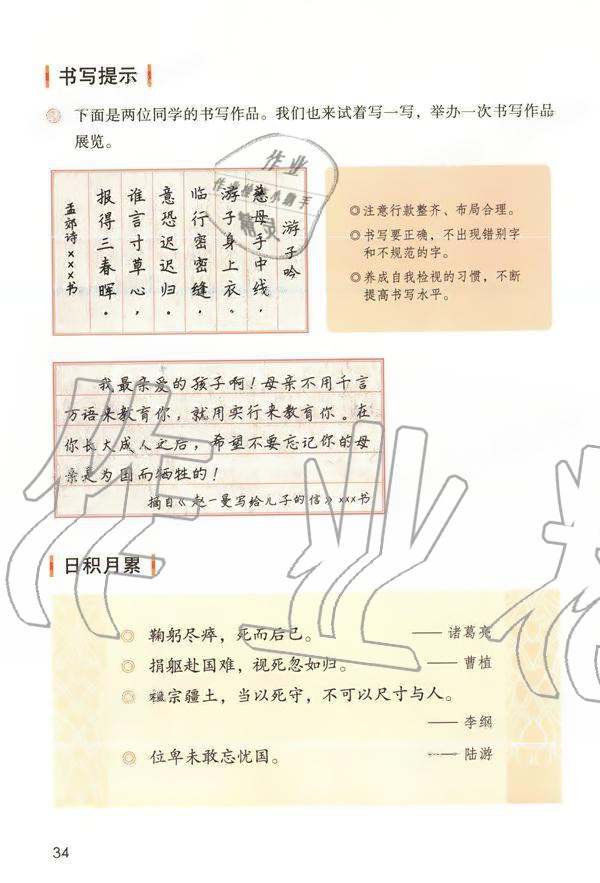 书写提示
下面是两位同学的书写作品。我们也来试着写一写，举办一次书写作品
展览。
游子吟
慈母手中线，
游子身上衣。
临行密密缝，
意恐迟迟归。
谁言寸草心，
报得三春晖。
孟郊诗×××书
注意行款整齐、布局合理。
书写要正确，不出现错别字
和不规范的字。
养成自我检视的习惯，不断
提高书写水平。
我最亲爱的孩子啊！母亲不用千言
万语来教育你，就用实行来教育你。在
你长大成人之后，希望不要忘记你的母
亲是为国而牺牲的！
摘自《赵一曼写给儿子的信》×××书
日积月累
鞠躬尽瘁，死而后已。 ——诸葛亮
捐躯赴国难，视死忽如归。 ——曹植
祖宗疆土，当以死守，不可以尺寸与人。
——李纲
位卑未敢忘忧国。 ——陆游
34
作业
作业检查小助手
精灵
作业